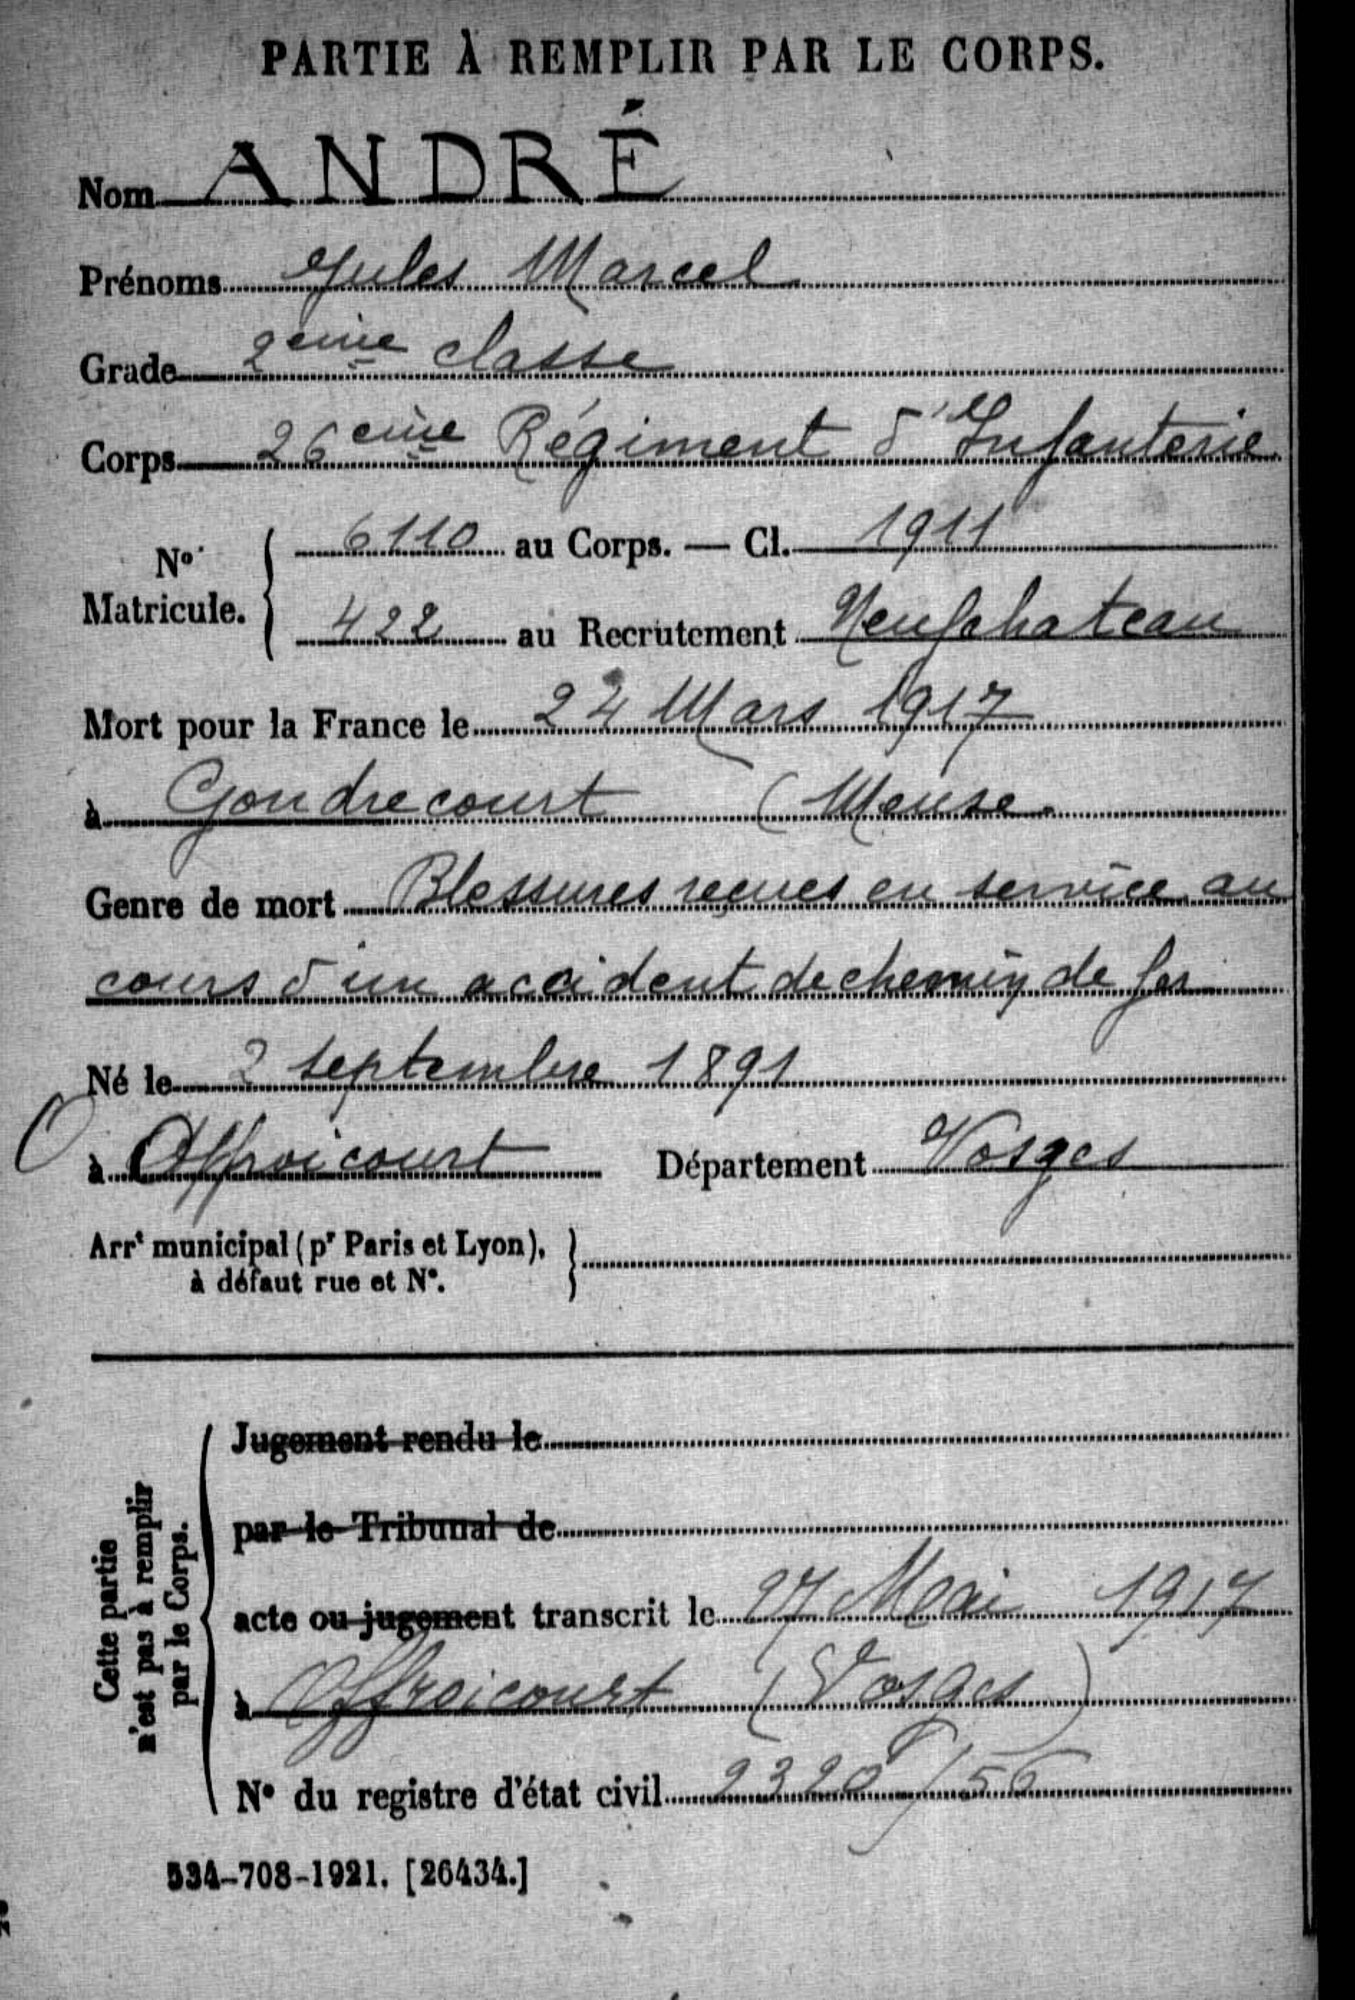 PARTIE À REMPLIR PAR LE CORPS.
Nom ANDRÉ
Prénoms Jules Marcel
Grade 2ème classe
Corps 26ème Régiment d'Infanterie
N° Matricule. { 6110 au Corps. — Cl. 1911
422 au Recrutement Neufchateau
Mort pour la France le 24 Mars 1917
à Gondrecourt (Meuse.
Genre de mort Blessures reçues en service au
cours d'un accident de chemin de fer
Né le 2 septembre 1891
à Offroicourt Département Vosges
Arrt municipal (pr Paris et Lyon), }
à défaut rue et N°.
Cette partie
n'est pas à remplir
par le Corps.
Jugement rendu le
par le Tribunal de
acte ou jugement transcrit le 27 Mai 1917
à Offroicourt (Vosges)
N° du registre d'état civil 2320 /56
534-708-1921. [26434.]